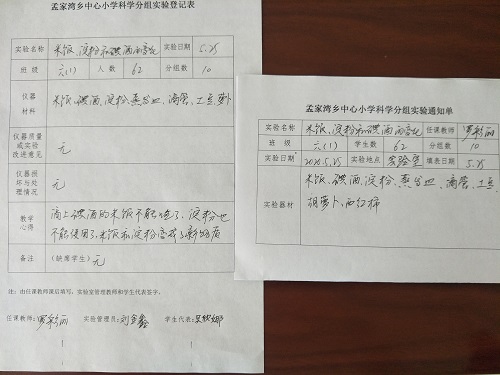 孟家湾乡中心小学科学分组实验登记表
实验名称 米饭、淀粉和碘酒的变化 实验日期 5.25
班 级 六(1) 人 数 62 分组数 10
仪器
材料
米饭、碘酒、淀粉、蒸发皿、滴管、土豆、萝卜
仪器质量
或实验
改进意见
无
仪器损
坏与处
理情况
无
教学
心得
滴上碘酒的米饭不能吃了,淀粉也
不能使用了,米饭和淀粉变成了新物质
备注 (缺席学生) 无
注:由任课教师课后填写,实验室管理教师和学生代表签字。
任课教师: 实验管理员:刘金鑫 学生代表:
孟家湾乡中心小学科学分组实验通知单
实验名称 米饭、淀粉和碘酒的变化 任课教师
班 级 六(1) 学生数 62 分组数 10
实验日期 5.25 实验地点 实验室 填表日期 5.23
实验器材
米饭、碘酒、淀粉、蒸发皿、滴管、土豆、
胡萝卜、西红柿